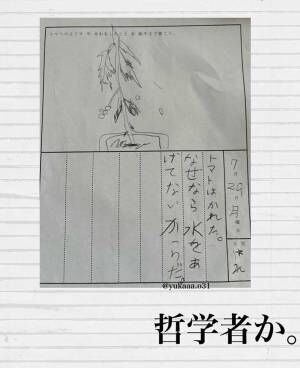 7月29日月曜日
トマトはかれた。
なぜなら水をあ
げてないからだ。
@yukaaa.o31
哲学者か。